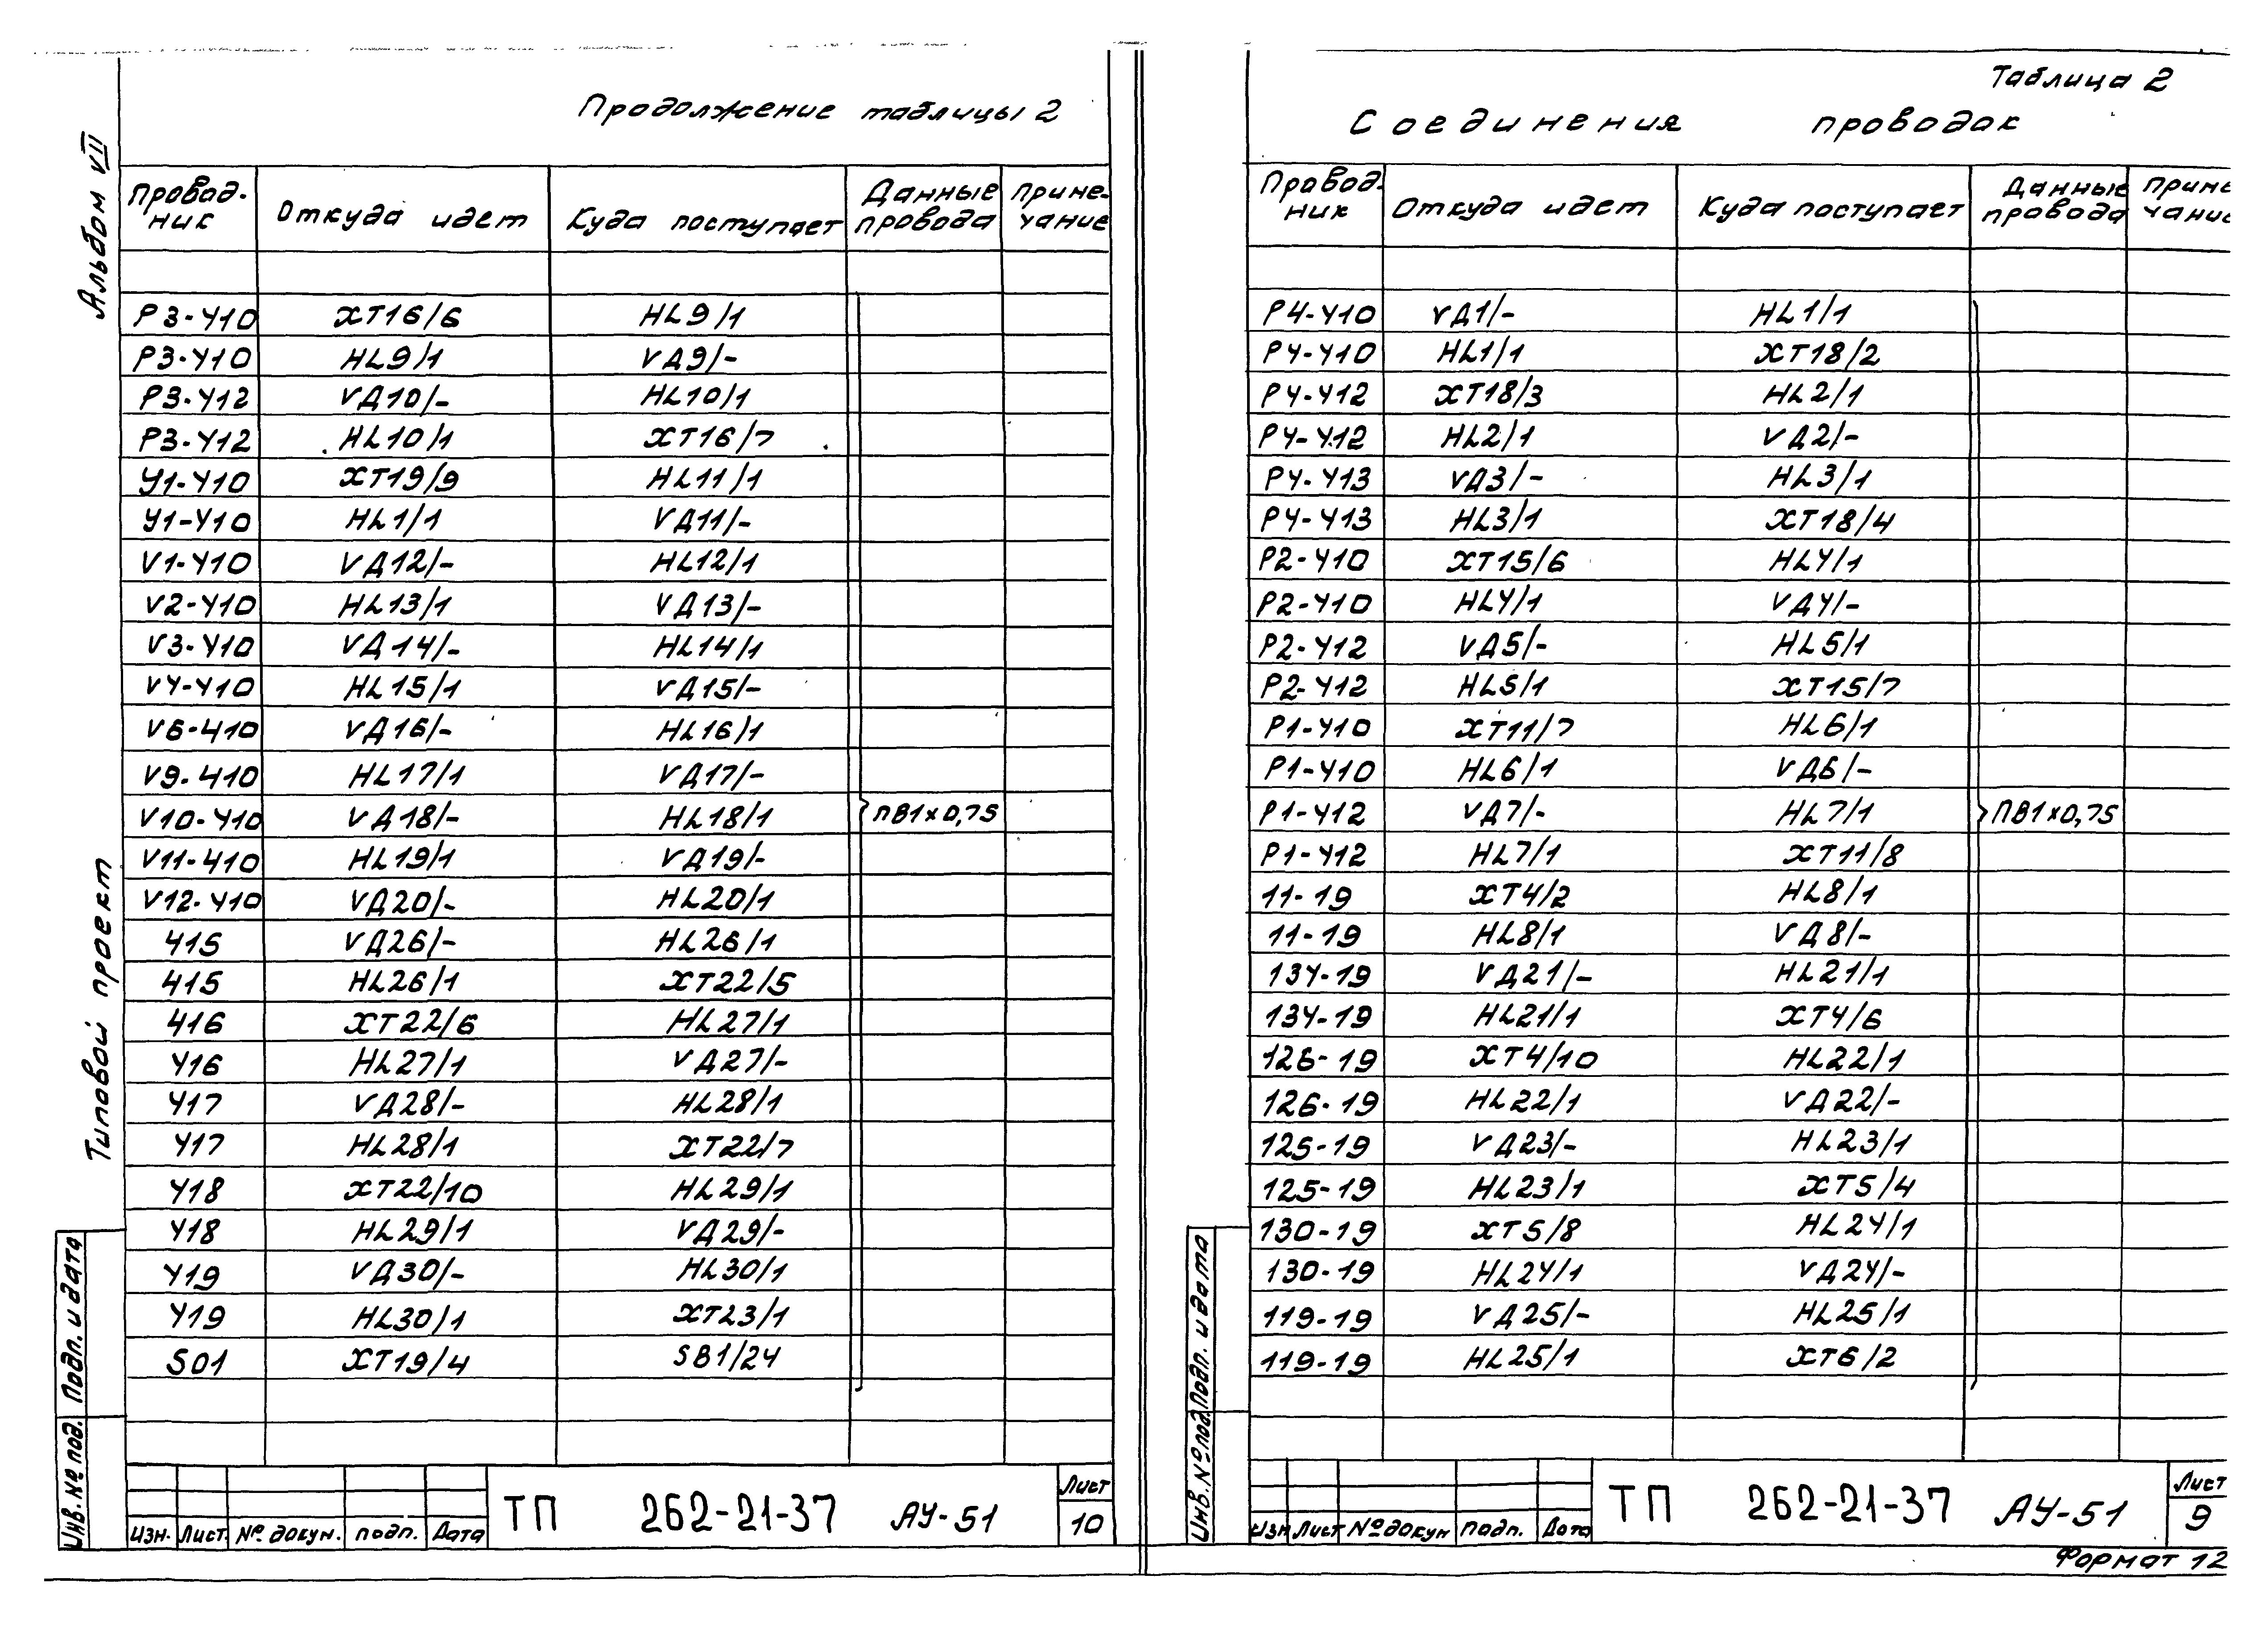 Продолжение таблицы 2
Альбом VII
Типовой проект
Провод- ник | Откуда идет | Куда поступает | Данные провода | Приме- чание
Р3-410 | ХТ16/6 | HL9/1
Р3-410 | HL9/1 | VД9/-
Р3-412 | VД10/- | HL10/1
Р3-412 | HL10/1 | ХТ16/7
У1-410 | ХТ19/9 | HL11/1
У1-410 | HL1/1 | VД11/-
V1-410 | VД12/- | HL12/1
V2-410 | HL13/1 | VД13/-
V3-410 | VД14/- | HL14/1
V4-410 | HL15/1 | VД15/-
V6-410 | VД16/- | HL16/1
V9-410 | HL17/1 | VД17/-
V10-410 | VД18/- | HL18/1 | ПВ1х0,75
V11-410 | HL19/1 | VД19/-
V12-410 | VД20/- | HL20/1
415 | VД26/- | HL26/1
415 | HL26/1 | ХТ22/5
416 | ХТ22/6 | HL27/1
416 | HL27/1 | VД27/-
417 | VД28/- | HL28/1
417 | HL28/1 | ХТ22/7
418 | ХТ22/10 | HL29/1
418 | HL29/1 | VД29/-
419 | VД30/- | HL30/1
419 | HL30/1 | ХТ23/1
501 | ХТ19/4 | SB1/24
Подп. и дата
Инв. № под.
Изм. Лист № докум. подп. Дата
ТП 262-21-37 АУ-51
Лист
10
Таблица 2
Соединения проводок
Провод- ник | Откуда идет | Куда поступает | Данные провода | Приме чание
Р4-410 | VД1/- | HL1/1
Р4-410 | HL1/1 | ХТ18/2
Р4-412 | ХТ18/3 | HL2/1
Р4-412 | HL2/1 | VД2/-
Р4-413 | VД3/- | HL3/1
Р4-413 | HL3/1 | ХТ18/4
Р2-410 | ХТ15/6 | HL4/1
Р2-410 | HL4/1 | VД4/-
Р2-412 | VД5/- | HL5/1
Р2-412 | HL5/1 | ХТ15/7
Р1-410 | ХТ11/7 | HL6/1
Р1-410 | HL6/1 | VД6/-
Р1-412 | VД7/- | HL7/1 | ПВ1х0,75
Р1-412 | HL7/1 | ХТ11/8
11-19 | ХТ4/2 | HL8/1
11-19 | HL8/1 | VД8/-
134-19 | VД21/- | HL21/1
134-19 | HL21/1 | ХТ4/6
126-19 | ХТ4/10 | HL22/1
126-19 | HL22/1 | VД22/-
125-19 | VД23/- | HL23/1
125-19 | HL23/1 | ХТ5/4
130-19 | ХТ5/8 | HL24/1
130-19 | HL24/1 | VД24/-
119-19 | VД25/- | HL25/1
119-19 | HL25/1 | ХТ6/2
Подп. и дата
Инв. № под.
Изм Лист № докум подп. Дата
ТП 262-21-37 АУ-51
Лист
9
Формат 12